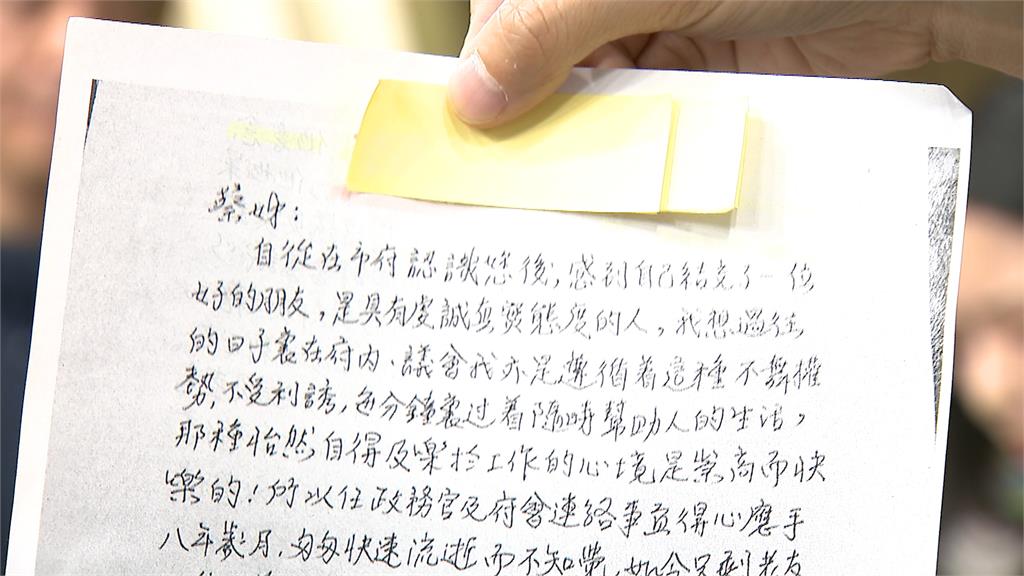 蔡姊：
自從在市府認識您後，感到自己結交了一位
好的朋友，是具有虔誠無贅態度的人，我想過往
的日子裏在府內、議會我亦是遵循着這種不舞權
勢，不受利誘，每分鐘裏过着隨時幫助人的生活，
那種怡然自得及樂於工作的心境是崇高而快
樂的！所以任政務官及府會連絡事宜得心應手
八年歲月，匆匆快速流逝而不知覺，如今只剩老友